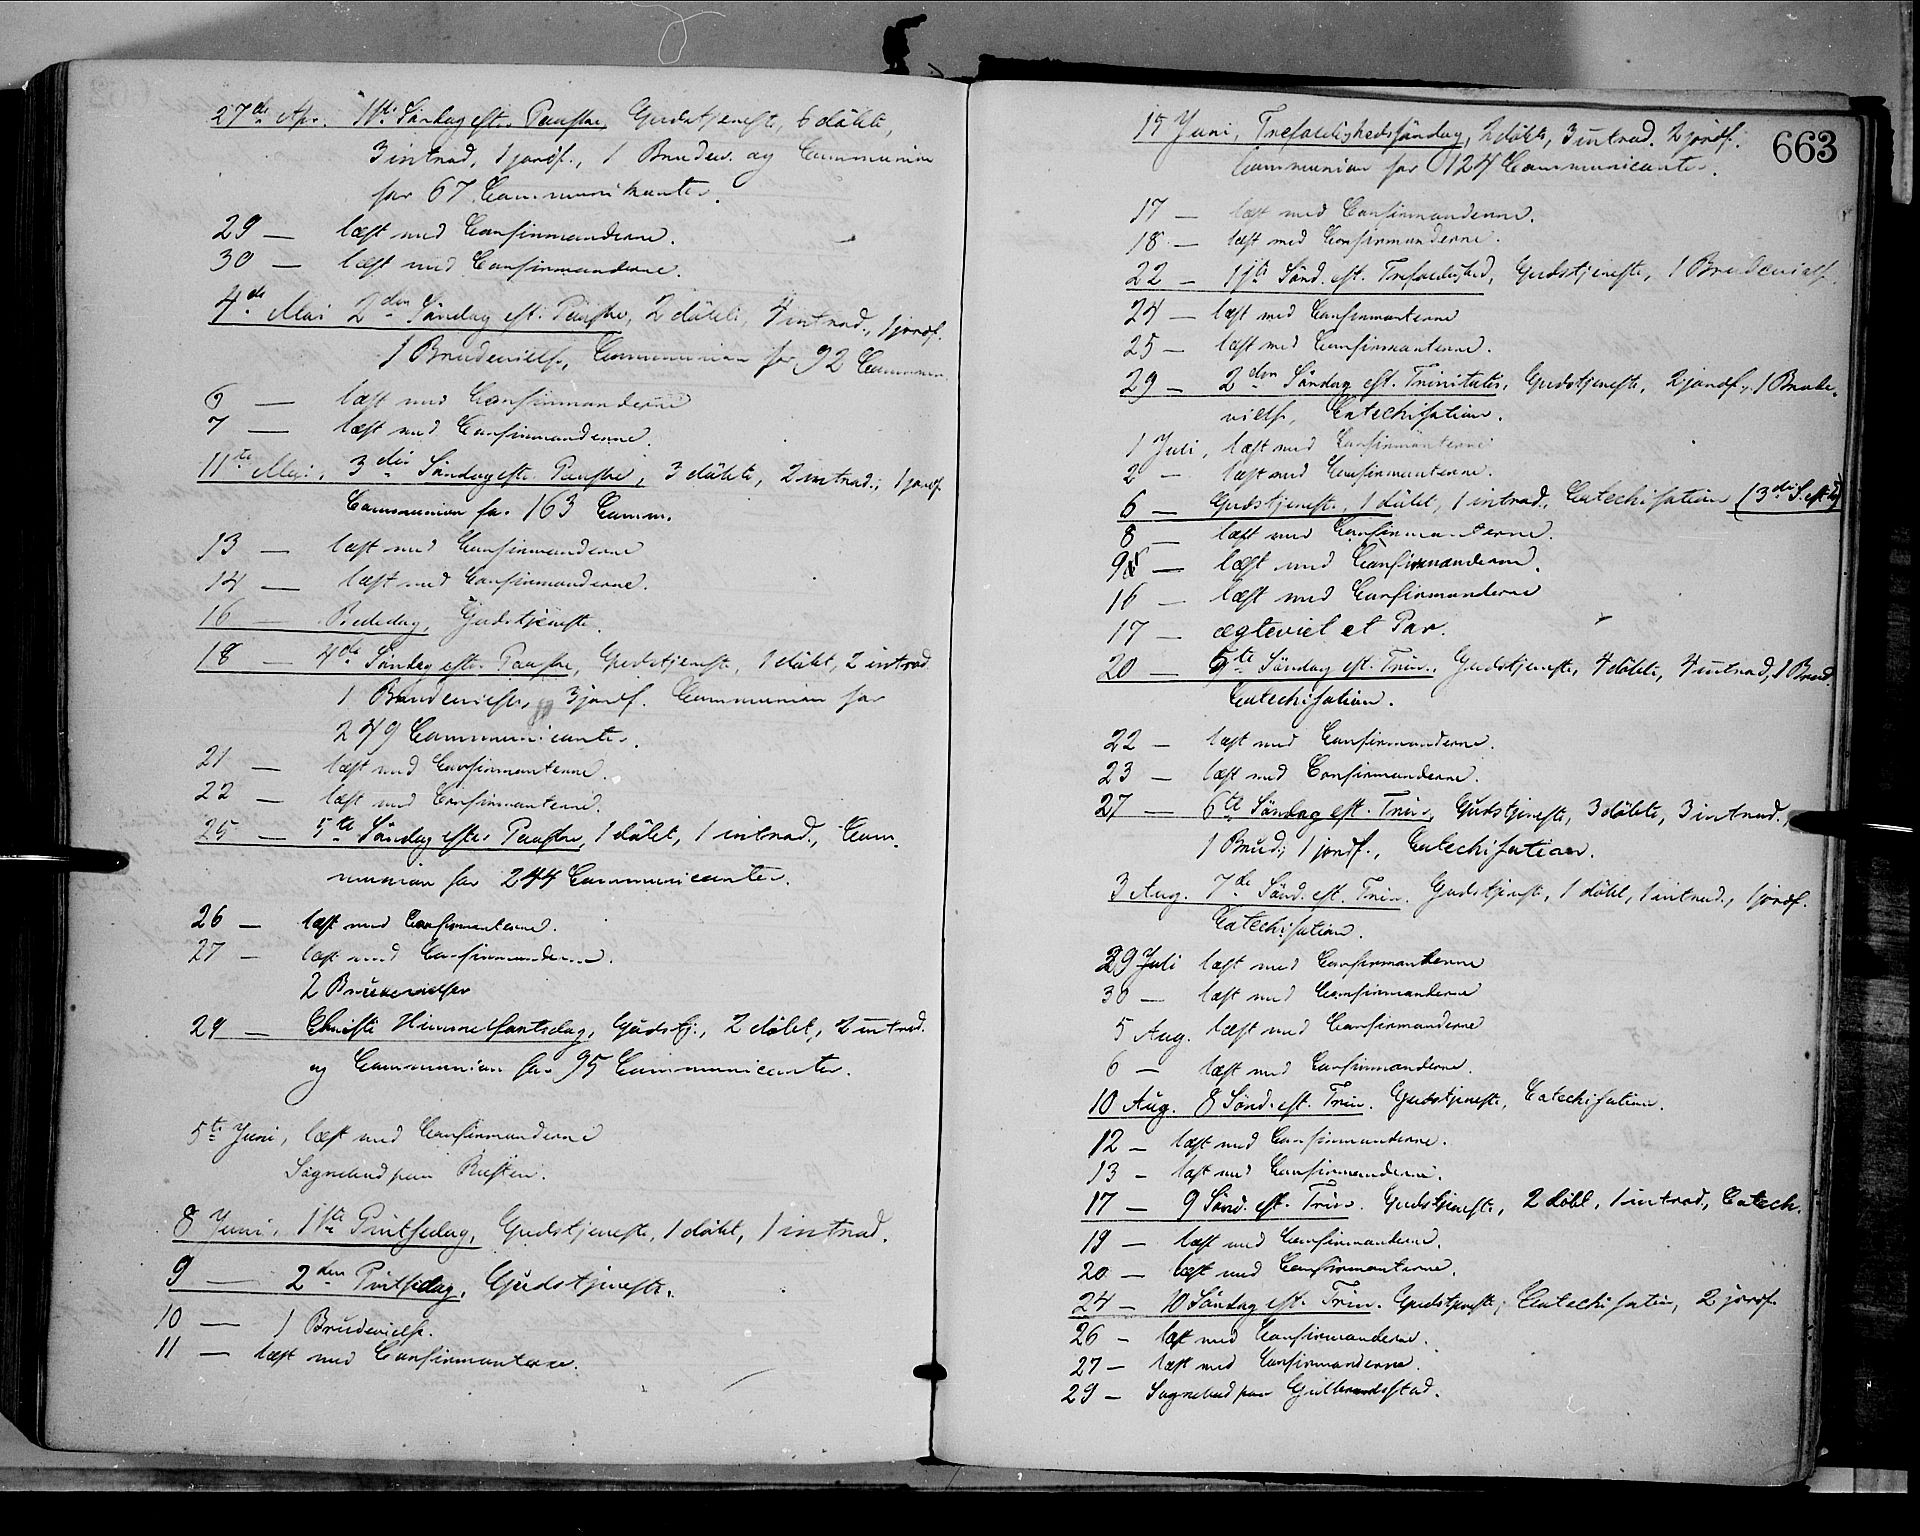 27de Apr. 1ste Söndag eft. Paaske, Gudstjeneste, 6 döbte,
3 introd., 1 jordf., 1 Brudev. og Communion
for 67 Communikanter.
29 — læst med Confirmanderne.
30 — læst med Confirmanderne.
4de Mai 2den Söndag eft. Paaske, 2 döbte, 4 introd., 1 jordf.
1 Brudevielse, Communion for 92 Commun.
6 — læst med Confirmanderne
7 — læst med Confirmanderne.
11te Mai, 3die Söndag eft. Paaske, 3 döbte, 2 introd., 1 jordf.
Communion for 163 Comm.
13 — læst med Confirmanderne
14 — læst med Confirmanderne.
16 — Bededag, Gudstjeneste.
18 — 4de Söndag efter Paaske, Gudstjeneste, 1 döbt, 2 introd.
1 Brudevielse, 3 jordf. Communion for
249 Communicanter.
21 — læst med Confirmanterne.
22 — læst med Confirmanterne.
25 — 5te Söndag efter Paaske, 1 döbt, 1 introd., Com-
munion for 244 Communicanter.
26 — læst med Confirmanterne.
27 — læst med Confirmanderne.
2 Brudevielser
29 — Christi Himmelfartsdag, Gudstj., 2 döbt, 2 introd.
og Communion for 95 Communicanter.
5te Juni, læst med Confirmanderne
Sognebud paa
8 Juni, 1ste Pintsedag, Gudstjeneste, 1 döbt, 1 introd.
9 — 2den Pintsedag, Gudstjeneste.
10 — 1 Brudevielse.
11 — læst med Confirmanterne.
663
15 Juni, Trefoldighedssöndag, 2 döbte, 3 introd. 2 jordf.
Communion for 124 Communicanter.
17 — læst med Confirmanderne.
18 — læst med Confirmanderne.
22 — 1ste Sönd. eft. Trefoldighed, Gudstjeneste, 1 Brudevielse.
24 — læst med Confirmanterne
25 — læst med Confirmanterne.
29 — 2den Söndag eft. Trinitatis, Gudstjeneste, 2 jordf., 1 Brude-
vielse, Catechisation.
1 Juli, læst med Confirmanterne
2 — læst med Confirmanterne.
6 — Gudstjeneste, 1 döbt, 1 introd., Catechisation (3die S. eft. T.)
8 — læst med Confirmanderne.
9 — læst med Confirmanderne.
16 — læst med Confirmanderne
17 — ægteviet et Par.
20 — 5te Söndag eft. Trin. Gudstjeneste, 4 döbte, 4 introd, 1 Brud.
Catechisation.
22 — læst med Confirmanderne.
23 — læst med Confirmanderne.
27 — 6te Söndag eft. Trin, Gudstjeneste, 3 döbte, 3 introd.,
1 Brud., 1 jordf., Catechisation.
3 Aug. 7de Sönd. eft. Trin. Gudstjeneste, 1 döbt, 1 introd., 1 jordf.
Catechisation.
29 Juli læst med Confirmanterne
30 — læst med Confirmanderne
5 Aug. læst med Confirmanderne
6 — læst med Confirmanderne.
10 Aug. 8 Sönd. eft. Trin. Gudstjeneste, Catechisation.
12 — læst med Confirmanderne.
13 — læst med Confirmanderne.
17 — 9 Sönd. eft. Trin. Gudstjeneste, 2 döbt, 1 introd., Catech.
19 — læst med Confirmanderne.
20 — læst med Confirmanterne.
24 — 10 Söndag eft. Trin. Gudstjeneste, Catechisation, 2 jordf.
26 — læst med Confirmanderne.
27 — læst med Confirmanderne.
29 — Sognebud paa Gulbrandsstad.